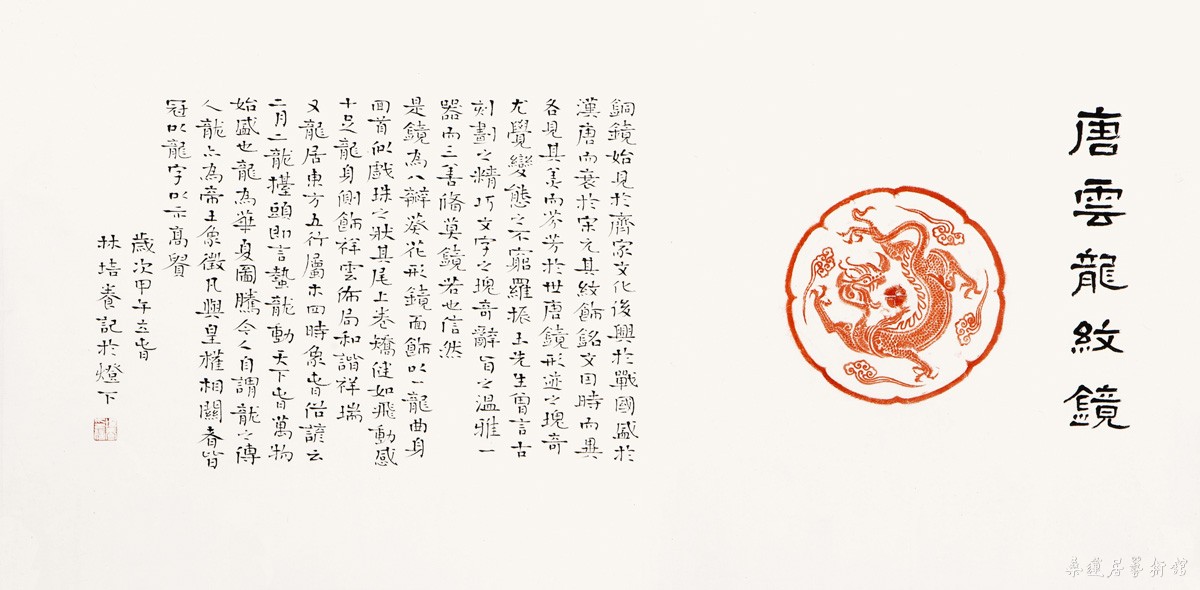 唐雲龍紋鏡
銅鏡始見於齊家文化後興於戰國盛於
漢唐而衰於宋元其紋飾銘文因時而異
各見其美而芬芳於世唐鏡形迹之瑰奇
尤覺變態之不窮羅振玉先生曾言古
刻劃之精巧文字之瑰奇辭旨之溫雅一
器而三善備莫鏡若也信然
是鏡為八瓣葵花形鏡面飾以一龍曲身
回首似戲珠之狀其尾上卷矯健如飛動感
十足龍身側飾祥雲佈局和諧祥瑞
又龍居東方五行屬木四時象春俗諺云
二月二龍擡頭即言蟄龍動天下春萬物
始盛也龍為華夏圖騰今人自謂龍之傳
人龍亦為帝王象徵凡與皇權相關者皆
冠以龍字以示高貴
歲次甲午立春
林培養記於燈下
桑蓮居藝術館